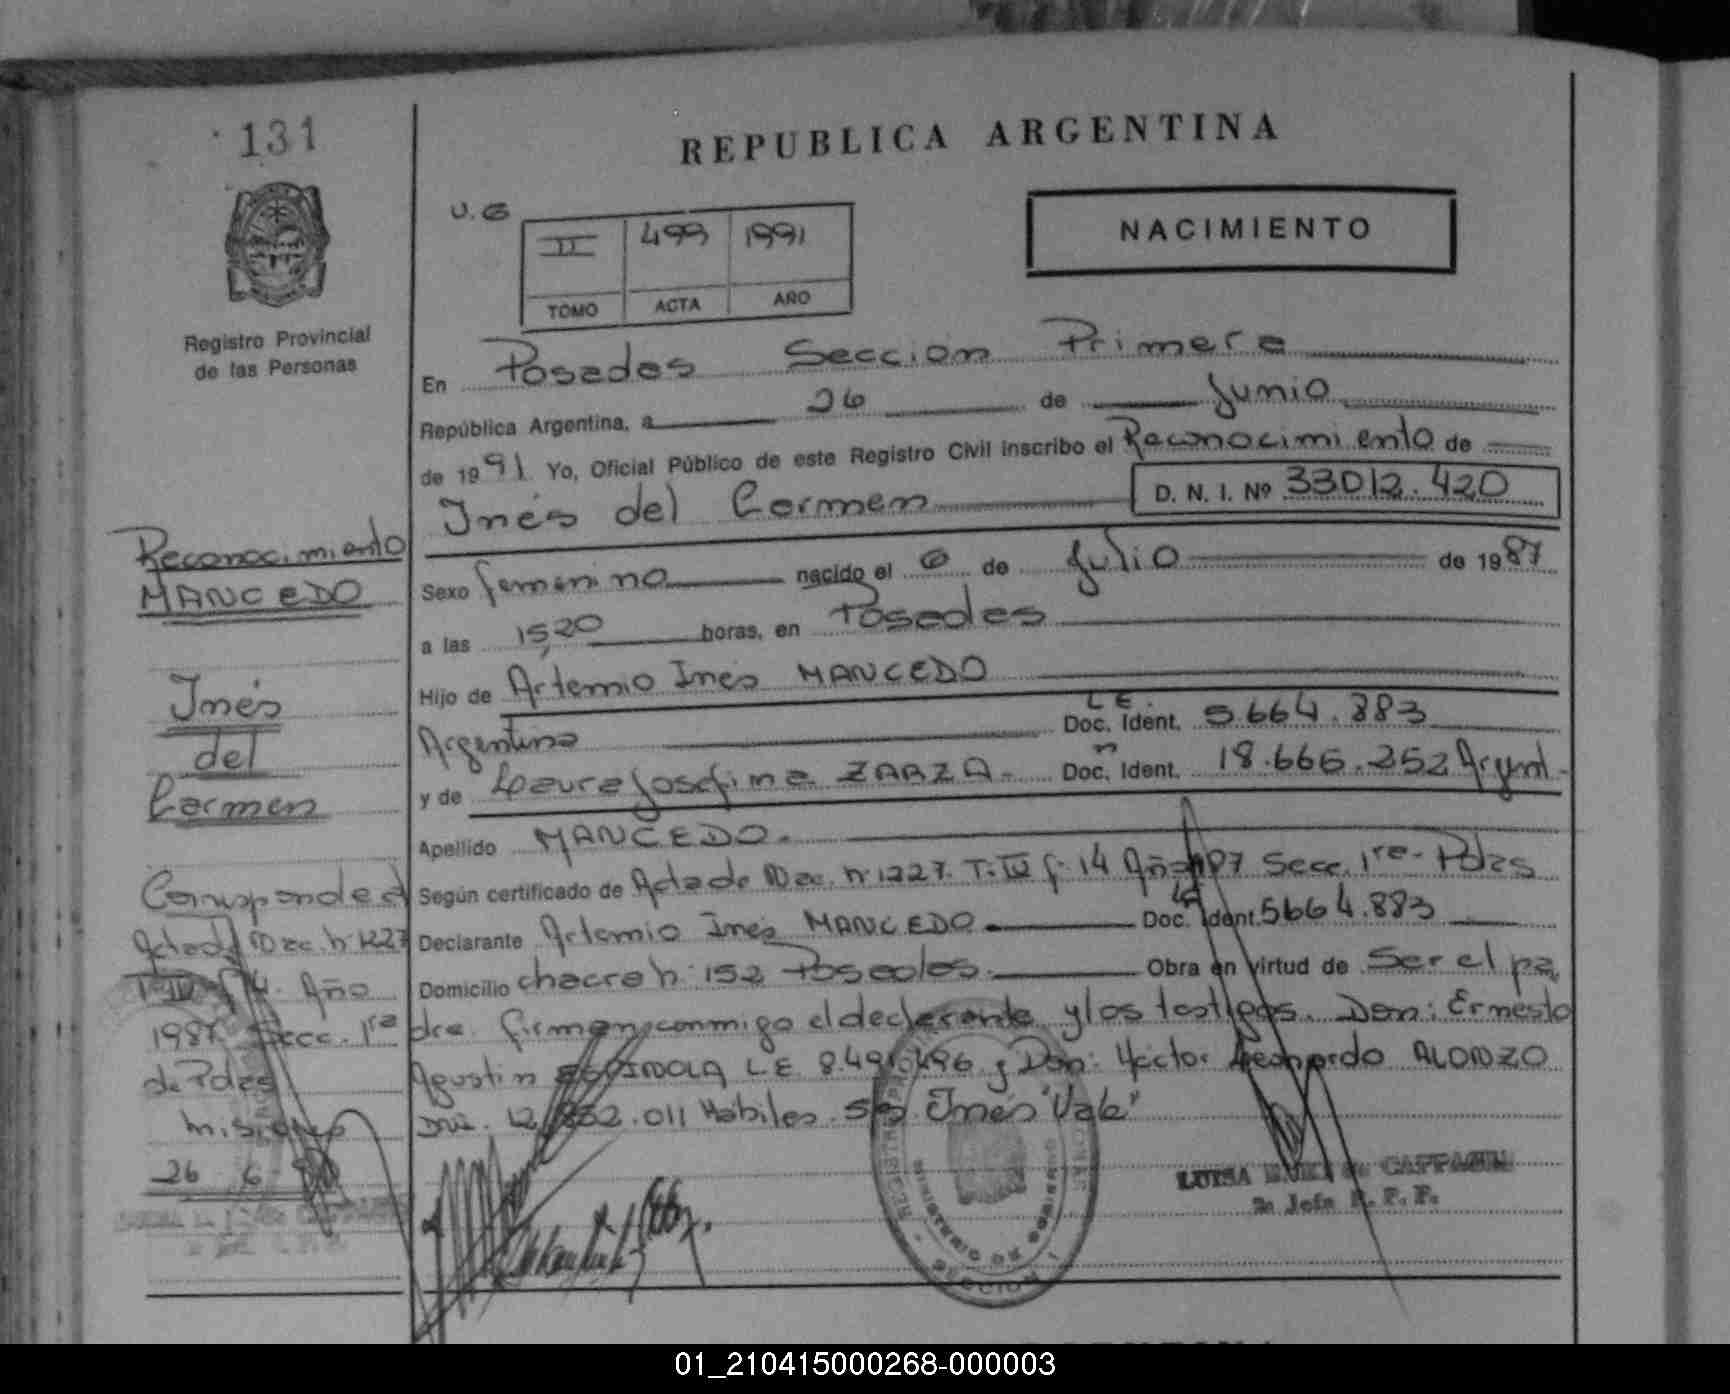 131
REPUBLICA ARGENTINA
U.G
II 499 1991
TOMO ACTA AÑO
NACIMIENTO
Registro Provincial
de las Personas
En Posadas Sección Primera
República Argentina, a 26 de Junio
de 1991. Yo, Oficial Público de este Registro Civil inscribo el Reconocimiento de
Inés del Carmen D. N. I. Nº 33012.420
Sexo femenino nacido el 6 de Julio de 1987
a las 15,20 horas, en Posadas
Hijo de Artemio Inés MANCEDO
Argentino L E. Doc. Ident. 5.664.883
y de Laura Josefina ZARZA. Doc. Ident. 18.666.252 Argent.
Apellido MANCEDO.
Según certificado de Acta de Nac. nº 1227. T: IV f: 14 Año 1987 Secc. 1ra. Pdas
Declarante Artemio Inés MANCEDO LE Doc. Ident. 5664.883
Domicilio chacra n: 152 Posadas. Obra en virtud de Ser el pa
dre. firman conmigo el declarante y los testigos. Don: Ernesto
Agustin ESPINDOLA L.E. 8.491.496 y Don: Héctor Leonardo ALONZO
DNI. 12.852.011 Hábiles. S/b Inés "Vale"
Reconocimiento
MANCEDO
Inés
del
Carmen
Corresponde al
Acta de Nac. nº 1227
T: IV f: 14. Año
1987. Secc. 1ra
de Pdas
Misiones
26 6
LUISA
2a Jefa R. P. P.
SECCION 1
01_210415000268-000003